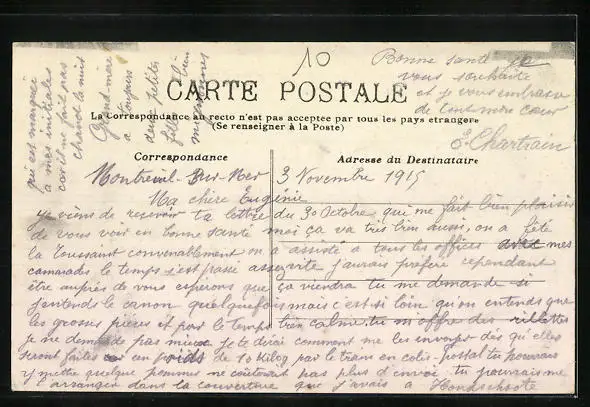 10
CARTE POSTALE
La Correspondance au recto n'est pas acceptee par tous les pays etrangers
(Se renseigner à la Poste)
Correspondance
Adresse du Destinataire
Montreuil-Sur-Mer 3 Novembre 1915
Ma chère Eugénie
je viens de recevoir ta lettre du 30 Octobre qui me fait bien plaisir
de vous voir en bonne santé moi ça va très bien aussi, on a fêté
la Toussaint convenablement on a assisté a tous les offices avec mes
camarades le temps s'est passé assez vite j'aurais préféré cependant
être auprès de vous esperons que ça viendra tu me demande si
j'entends le canon quelquefois mais c'est si loin qu'on entends que
les grosses pièces et par le temps bien calme, tu m'offre des rillettes
je ne demande pas mieux je te dirai comment me les envoyer dès qu'elles
seront faites en poids de 10 kilog par le train en colis-postal tu pourrais
y mettre quelque pommes ne couterait pas plus d'envoi tu pourrais me
l'arranger dans la couverture que j'avais a Hondschoote
qui est marquée
a mes initiales
car il ne fait pas
chaud la nuit
Grand-mère
a toujours
deux petites
filles bien
mignonnes
Bonne santé je
vous souhaite
et je vous embrasse
de tout mon cœur
E. Chartrain